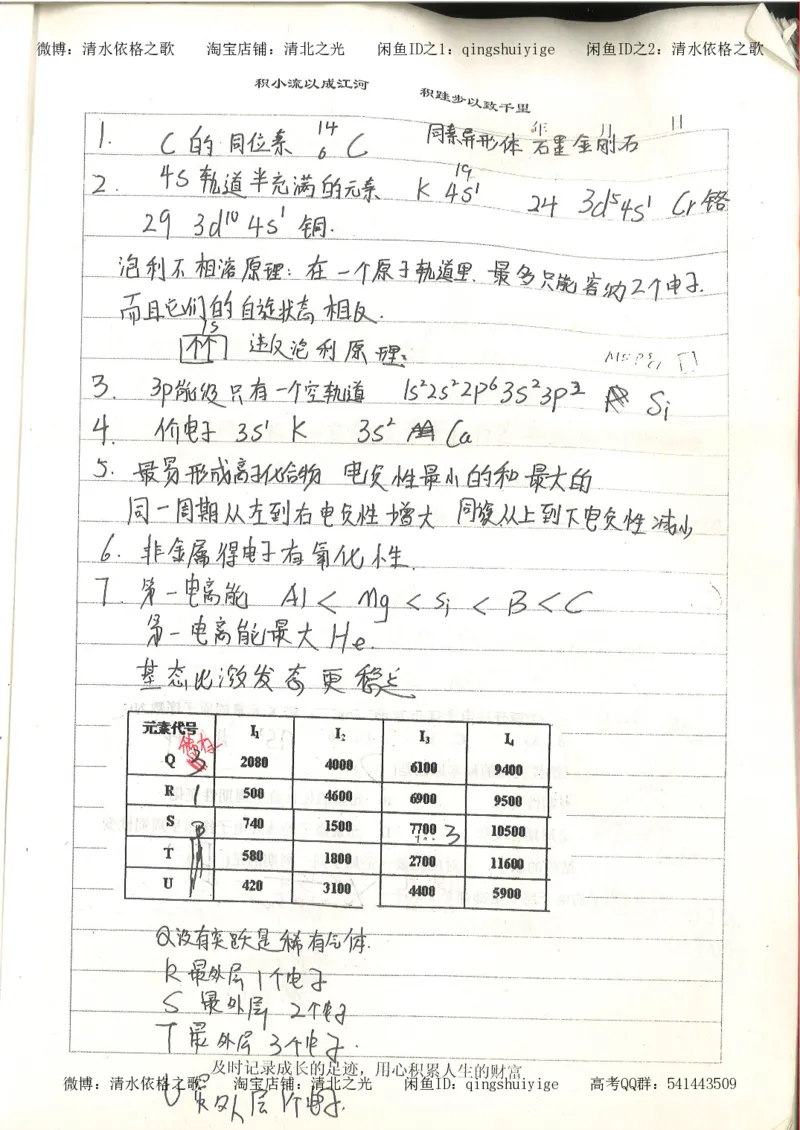 微博：清水依格之歌 淘宝店铺：清北之光 闲鱼ID之1：qingshuiyige 闲鱼ID之2：清水依格之歌
积小流以成江河 积跬步以致千里
1. C的同位素 ¹⁴₆C 同素异形体 石墨金刚石
2. 4S轨道半充满的元素 K 19 4s¹ 24 3d⁵4s¹ Cr铬
29 3d¹⁰4s¹ 铜.
泡利不相溶原理：在一个原子轨道里.最多只能容纳2个电子.
而且它们的自旋状态相反.
1s ↑↑ 违反泡利原理:
3. 3p能级只有一个空轨道 1s²2s²2p⁶3s²3p² Si
4. 价电子 3s¹ K 3s² Ca
5. 最易形成离子化合物 电负性最小的和最大的
同一周期从左到右电负性增大 同族从上到下电负性减小
6. 非金属得电子有氧化性.
7. 第一电离能 Al < Mg < Si < B < C
第一电离能最大 He.
基态比激发态更稳定
元素代号 I₁ I₂ I₃ I₄
Q 2080 4000 6100 9400
R 1 500 4600 6900 9500
S 740 1500 7700 3 10500
T 580 1800 2700 11600
U 420 3100 4400 5900
Q没有突跃是稀有气体.
R最外层1个电子
S 最外层 2个电子
T最外层 3个电子.
及时记录成长的足迹，用心积累人生的财富
微博：清水依格之歌 淘宝店铺：清北之光 闲鱼ID：qingshuiyige 高考QQ群：541443509
U 最外层1个电子.